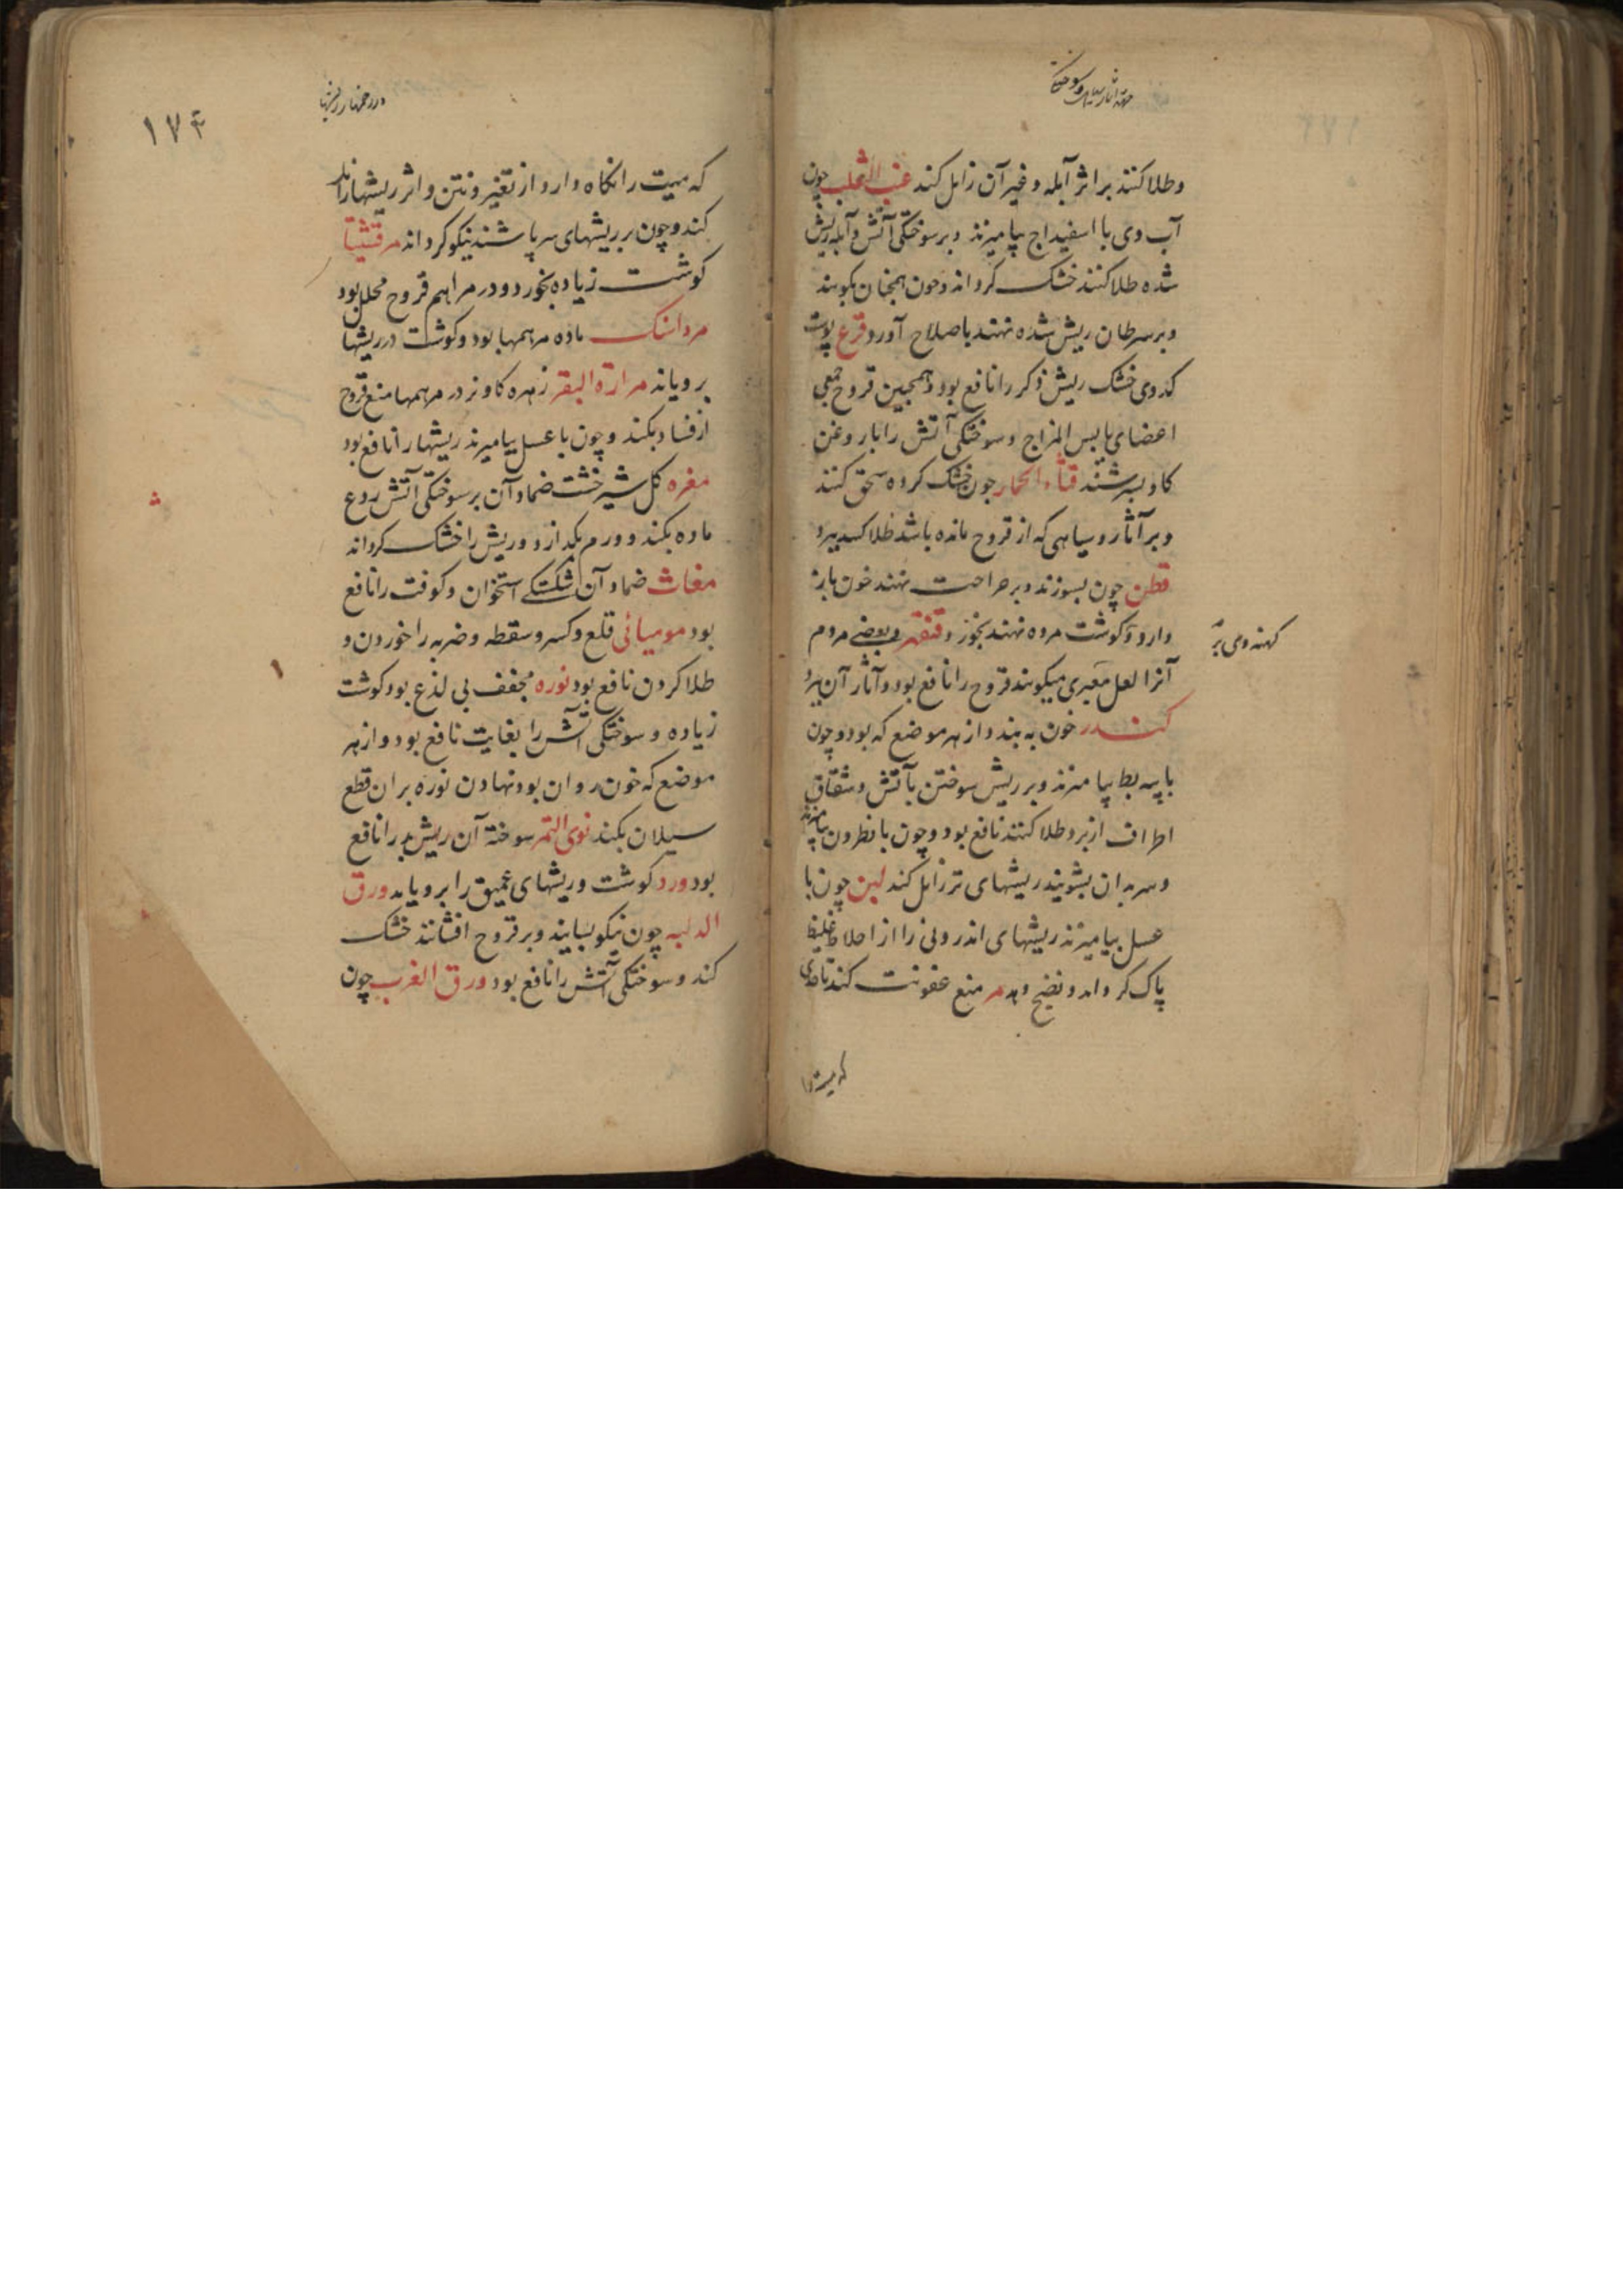 وطلا کنند بر اثر آبله و غیر آن زایل کند عنب الثعلب چون
آب وی با اسفیداج بیامیزند و بر سوختگی آتش و آبله ریش
شده طلا کنند خشک کرداند و چون همچنان بکوبند
و بر سرطان ریش شده نهند باصلاح آورد قرع پوست
کدوی خشک ریش ذکر را نافع بود و همچنین قروح جمیع
اعضای یابس المزاج و سوختگی آتش را با روغن
کاو بسرشند قثاء الحمار چون خشک کرده سحق کنند
و بر آثار و سیاهی که از قروح مانده باشد طلا کنند ببرد
قطن چون بسوزند و بر جراحت نهند خون باز
دارد و کوشت مرده نهند بخورد و بعضی مردم
کهنه
آنرا لعل معبری میکویند قروح را نافع بود و آثار آن ببرد
کندر خون به بندد از هر موضع که بود و چون
با پیه بط بیامیزند و بر ریش سوختن بآتش و شقاق
اطراف از برد طلا کنند نافع بود و چون با نطرون بیامیزند
و سر بدان بشویند ریشهای تر زایل کند لبن چون با
عسل بیامیزند ریشهای اندرونی را از اخلاط غلیظ
پاک کرداند و نضج دهد مر منع عفونت کند تا حدی
که میت را
۱۷۴
که میت را نکاه دارد از تغیر و نتن و اثر ریشها زایل
کند و چون بر ریشهای سر پاشند نیکو کرداند مرقشیثا
کوشت زیاده بخورد و در مراهم قروح محلل بود
مرداسنک ماده مرهمها بود و کوشت در ریشها
برویاند مرارة البقر زهره کاو نر در مرهمها منع قروح
از فساد بکند و چون با عسل بیامیزند ریشها را نافع بود
مغره کل شیر خشت ضماد آن بر سوختگی آتش ردع
ماده بکند و ورم بکدازد و ریش را خشک کرداند
مغاث ضماد آن شکستکی استخوان و کوفت را نافع
بود مومیائی قلع و کسر و سقطه و ضربه را خوردن و
طلا کردن نافع بود نوره مجفف بی لذع بود کوشت
زیاده و سوختگی آتش را بغایت نافع بود و از هر
موضع که خون روان بود نهادن نوره بران قطع
سیلان بکند نوی التمر سوخته آن ریش بد را نافع
بود ورد کوشت و ریشهای عمیق را برویاند ورق
الدلبه چون نیکو بسایند و بر قروح افشانند خشک
کند و سوختگی آتش را نافع بود ورق الغرب چون